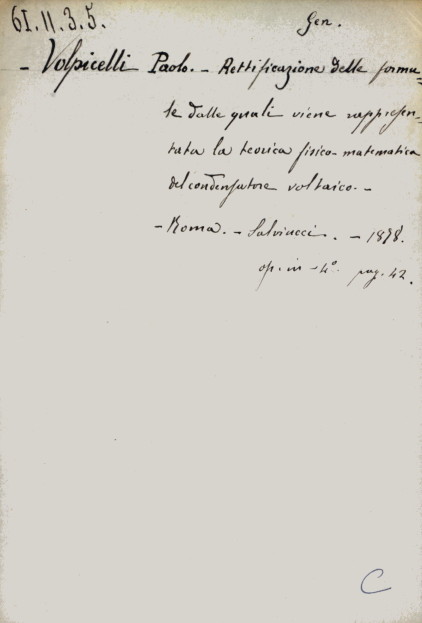 61.11.3.5. Gen.
- Volpicelli Paolo. - Rettificazione delle formu-
le dalle quali viene rappresen-
tata la teorica fisico-matematica
del condensatore voltaico. -
- Roma. - Salviucci. - 1878.
op. in - 4º. pag. 42.
C